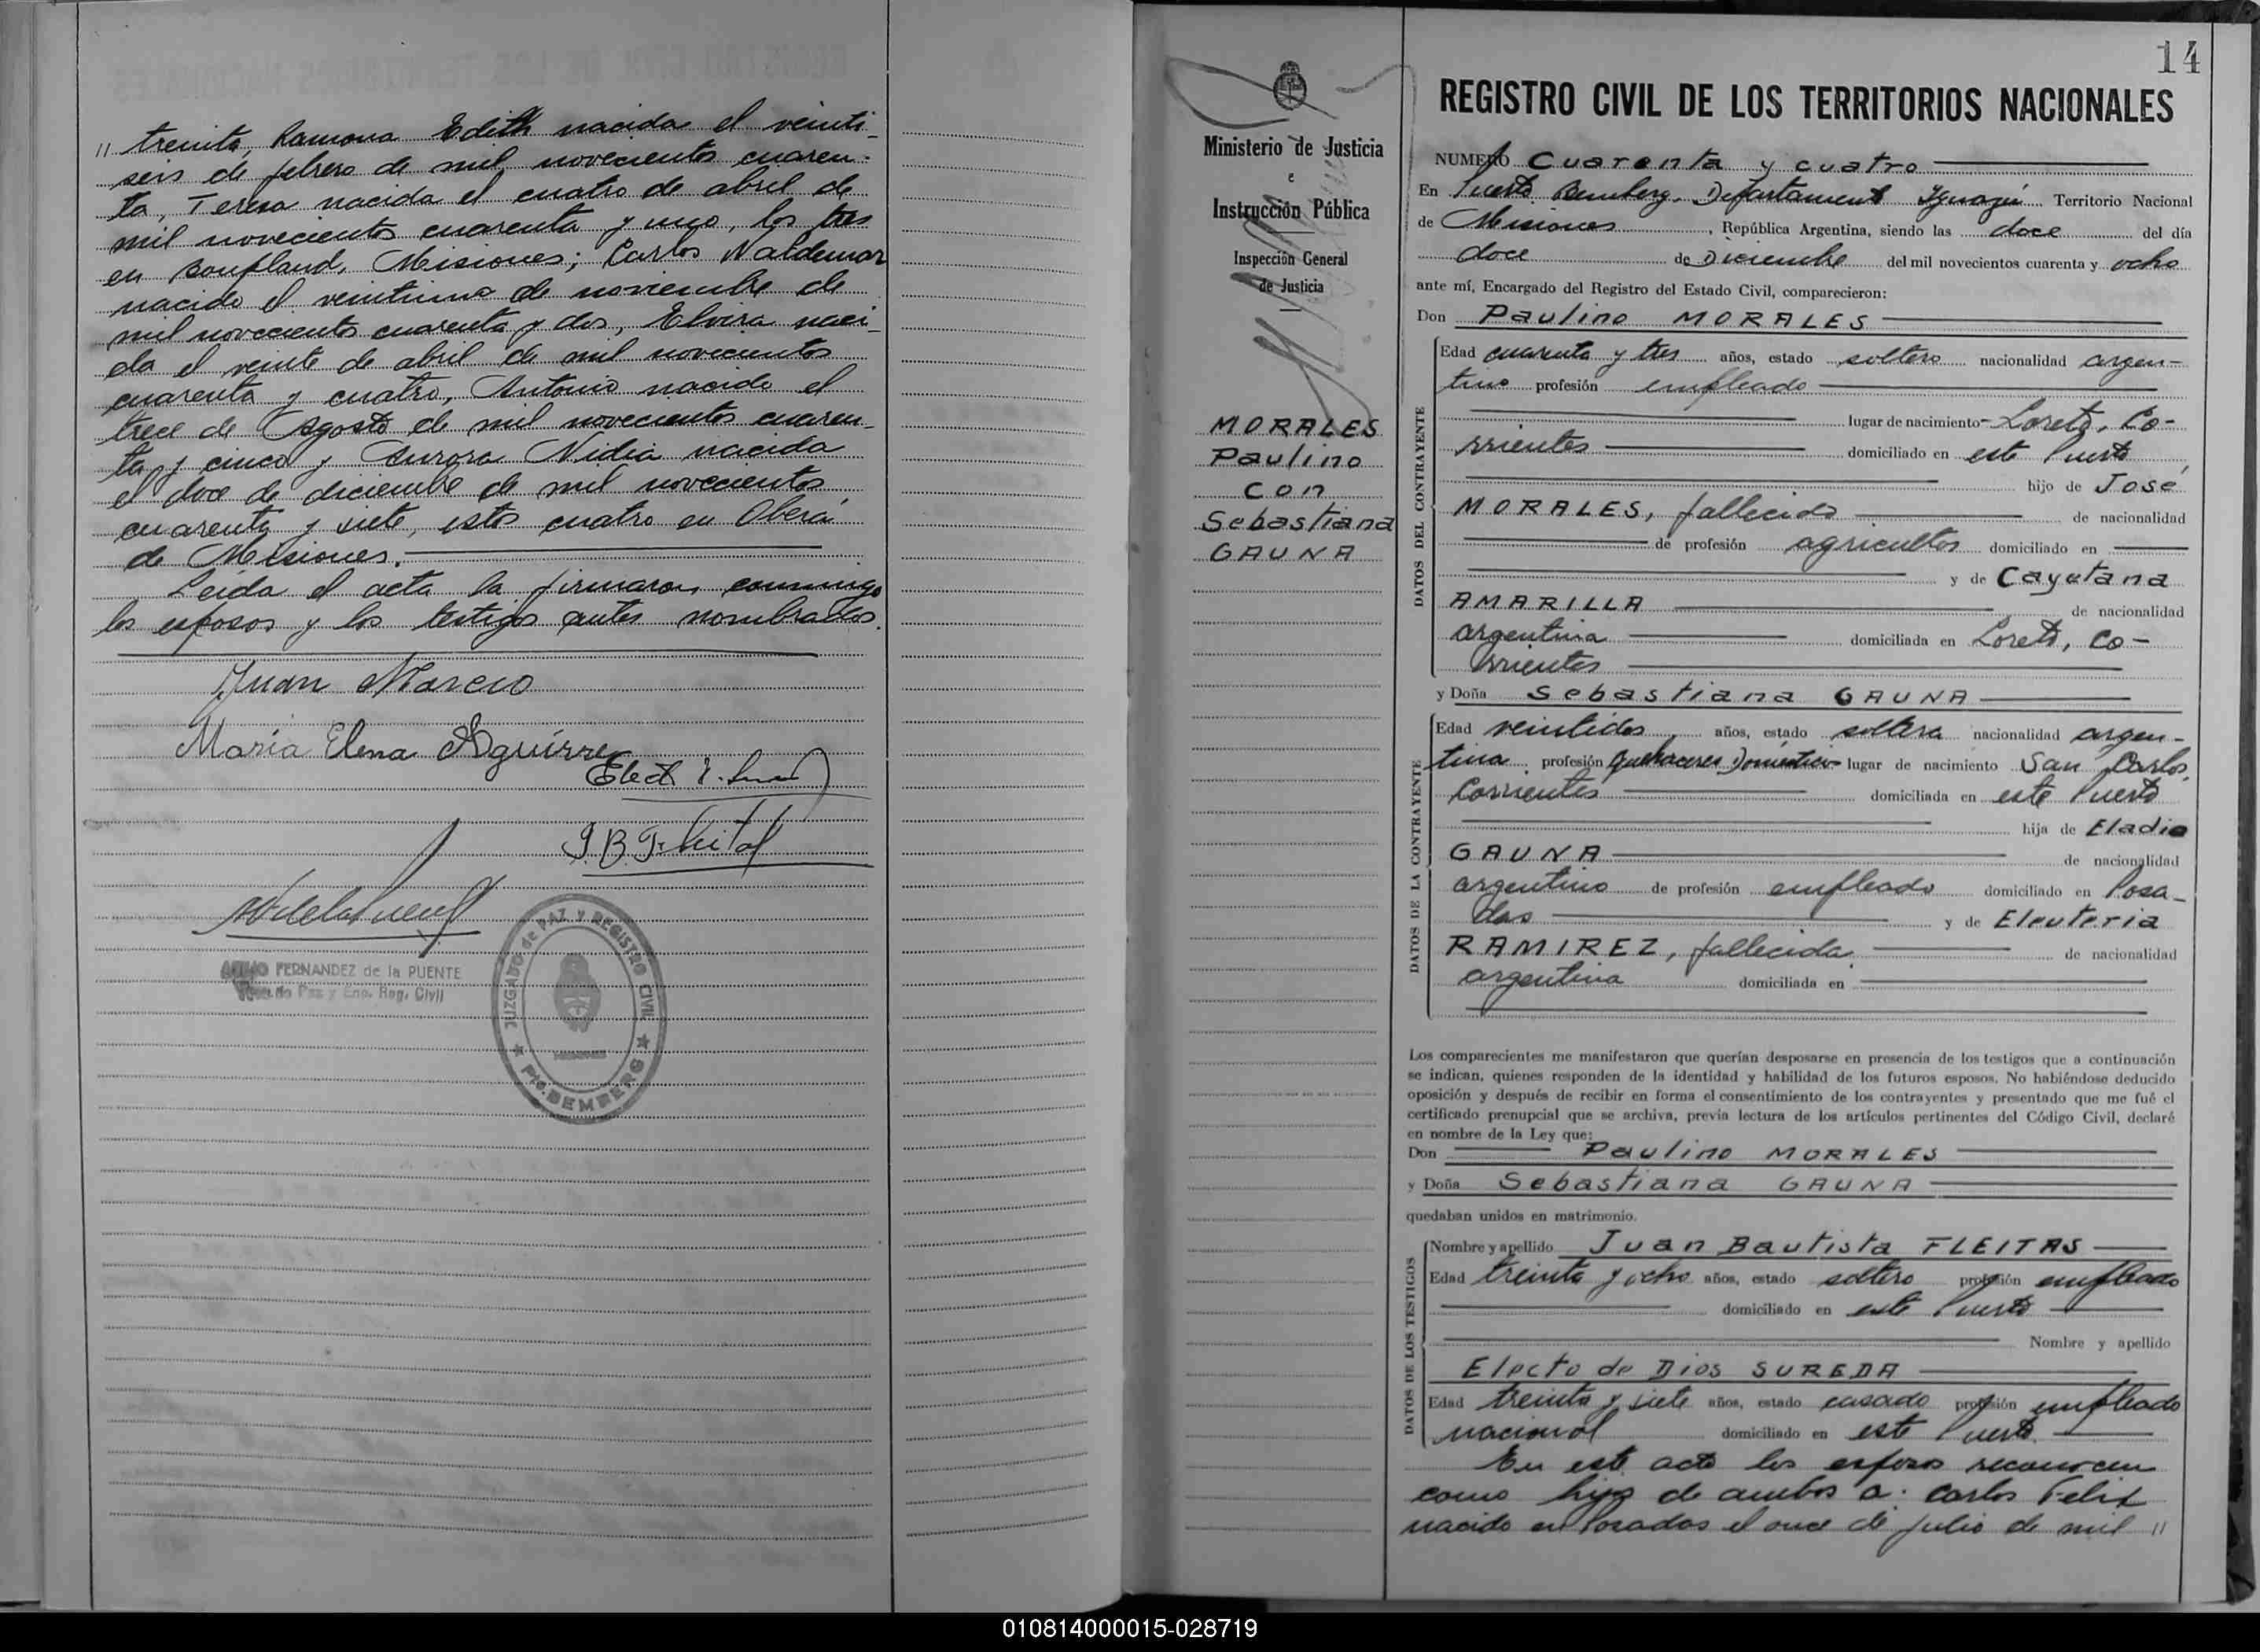 " treinta, Ramona Edith nacida el veinti-
seis de febrero de mil novecientos cuaren-
ta, Teresa nacida el cuatro de abril de
mil novecientos cuarenta y uno, los tres
en Bonpland, Misiones; Carlos Waldemar
nacido el veintiuno de noviembre de
mil novecientos cuarenta y dos, Elvira naci-
da el veinte de abril de mil novecientos
cuarenta y cuatro, Antonio nacido el
trece de Agosto de mil novecientos cuaren-
ta y cinco y Aurora Nidia nacida
el doce de diciembre de mil novecientos
cuarenta y siete, estos cuatro en Oberá
de Misiones.
Leida el acta la firmaron conmigo
los esposos y los testigos antes nombrados.
Juan Marcio
María Elena Aguirre
J. B. Fleitas
FERNANDEZ de la PUENTE
de Paz y Enc. Reg. Civil
JUZGADO de PAZ y REGISTRO CIVIL
★ Pto. BEMBERG ★
14
Ministerio de Justicia
e
Instrucción Pública
Inspección General
de Justicia
MORALES
Paulino
con
Sebastiana
GAUNA
REGISTRO CIVIL DE LOS TERRITORIOS NACIONALES
NUMERO Cuarenta y cuatro
En Puerto Bemberg, Departamento Iguazú Territorio Nacional
de Misiones, República Argentina, siendo las doce del día
doce de Diciembre del mil novecientos cuarenta y ocho
ante mí, Encargado del Registro del Estado Civil, comparecieron:
Don Paulino MORALES
DATOS DEL CONTRAYENTE
Edad cuarenta y tres años, estado soltero nacionalidad argen-
tino profesión empleado
lugar de nacimiento Loreto, Co-
rrientes domiciliado en este Puerto,
hijo de José
MORALES, fallecido de nacionalidad
de profesión agricultor domiciliado en
y de Cayetana
AMARILLA de nacionalidad
argentina domiciliada en Loreto, Co-
rrientes
y Doña Sebastiana GAUNA
DATOS DE LA CONTRAYENTE
Edad veintidos años, estado soltera nacionalidad argen-
tina profesión Quehaceres Domésticos lugar de nacimiento San Carlos,
Corrientes domiciliada en este Puerto
hija de Eladio
GAUNA de nacionalidad
argentino de profesión empleado domiciliado en Posa-
das y de Eleuteria
RAMIREZ, fallecida de nacionalidad
argentina domiciliada en
Los comparecientes me manifestaron que querían desposarse en presencia de los testigos que a continuación
se indican, quienes responden de la identidad y habilidad de los futuros esposos. No habiéndose deducido
oposición y después de recibir en forma el consentimiento de los contrayentes y presentado que me fué el
certificado prenupcial que se archiva, previa lectura de los artículos pertinentes del Código Civil, declaré
en nombre de la Ley que:
Don Paulino MORALES
y Doña Sebastiana GAUNA
quedaban unidos en matrimonio.
DATOS DE LOS TESTIGOS
Nombre y apellido Juan Bautista FLEITAS
Edad treinta y ocho años, estado soltero profesión empleado
domiciliado en este Puerto
Nombre y apellido
Electo de Dios SUREDA
Edad treinta y siete años, estado casado profesión empleado
nacional domiciliado en este Puerto.
En este acto los esposos reconocen
como hijo de ambos a: Carlos Felix
nacido en Posadas el once de julio de mil "
010814000015-028719